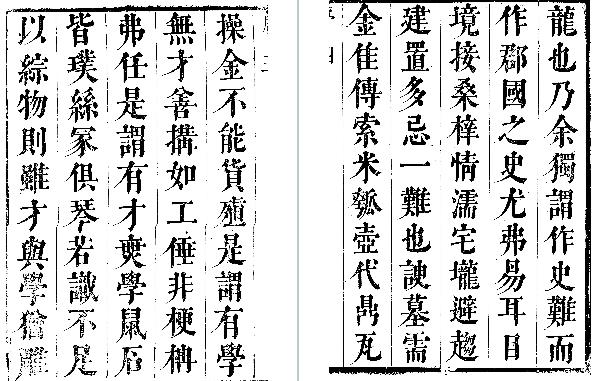 龍也乃余獨謂作史難而
作郡國之史尤弗易耳目
境接桑梓情濡宅壠避趨
建置多忌一難也諛墓需
金佳傳索米瓠壺代鼎瓦
操金不能貨殖是謂有學
無才善搆如工倕非梗柟
弗任是謂有才爽學鼠石
皆璞絲冢俱琴若識不足
以綜物則雖才與學猶離